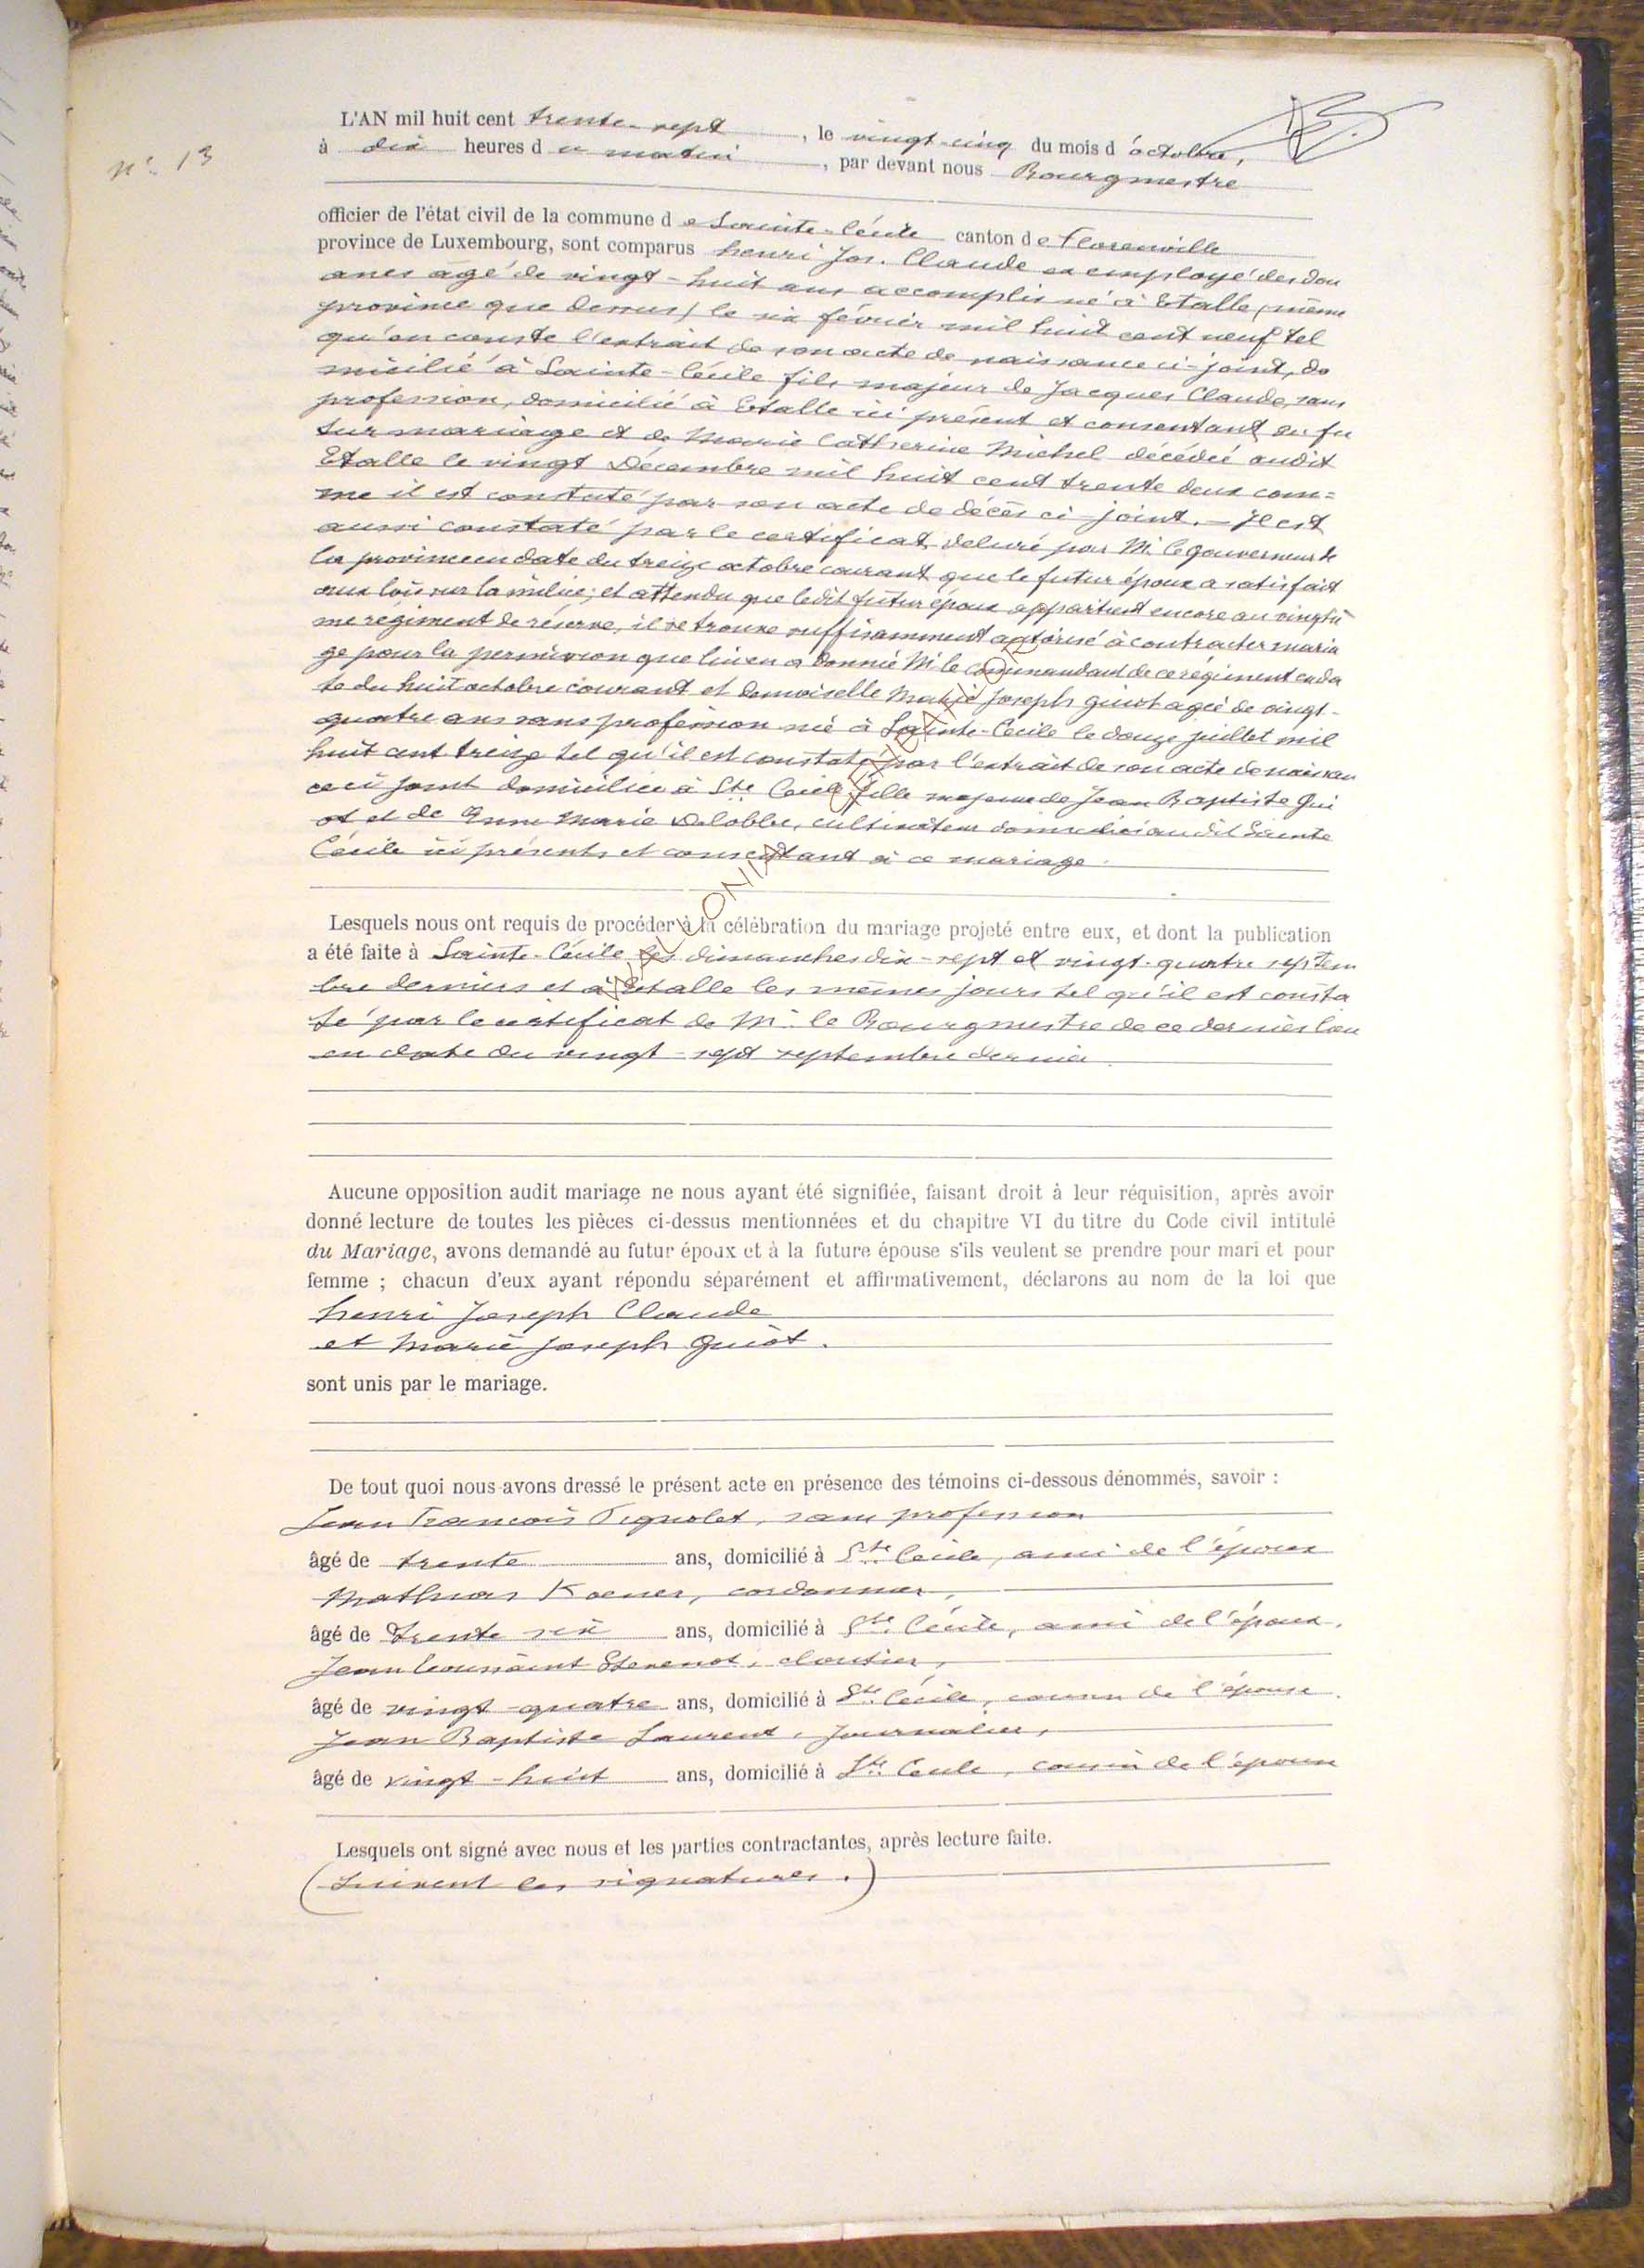 N° 13
L'AN mil huit cent trente-sept, le vingt-cinq du mois d'octobre,
à dix heures du matin, par devant nous Bourgmestre
officier de l'état civil de la commune de Sainte-Cécile canton de Florenville
province de Luxembourg, sont comparus henri Jos. Claude ex employé des dou
anes agé de vingt-huit ans accomplis né à Etalle (même
province que dessus) le six février mil huit cent neuf tel
qu'en conste l'extrait de son acte de naissance ci-joint, do
micilié à Sainte-Cécile fils majeur de Jacques Claude, sans
profession, domicilié à Etalle ici présent et consentant au fu
tur mariage et de Marie Catherine Michel décédée audit
Etalle le vingt Décembre mil huit cent trente deux com=
me il est constaté par son acte de décès ci-joint. — Il est
aussi constaté par le certificat delivré par Mr le gouverneur de
la province en date du treize octobre courant que le futur époux a satisfait
aux lois sur la milice; et attendu que ledit futur époux appartient encore au vingtiè
me régiment de réserve, il se trouve suffisamment autorisé à contracter maria
ge pour la permission que lui en a donnée Mr le commandant de ce régiment en da
te du huit octobre courant et demoiselle Marie Joseph Guiot agée de vingt-
quatre ans sans profession née à Sainte-Cécile le douze juillet mil
huit cent treize tel qu'il est constaté par l'extrait de son acte de naissan
ce ci joint domiciliée à Ste Cécile fille majeure de Jean Baptiste Gui
ot et de Anne Marie Delobbe, cultivateurs domiciliés audit Sainte
Cécile ici présents et consentant à ce mariage.
Lesquels nous ont requis de procéder à la célébration du mariage projeté entre eux, et dont la publication
a été faite à Sainte-Cécile les dimanches dix-sept et vingt-quatre septem
bre derniers et à Etalle les mêmes jours tel qu'il est consta
té par le certificat de Mr le Bourgmestre de ce dernier lieu
en date du vingt-sept septembre dernier
Aucune opposition audit mariage ne nous ayant été signifiée, faisant droit à leur réquisition, après avoir
donné lecture de toutes les pièces ci-dessus mentionnées et du chapitre VI du titre du Code civil intitulé
du Mariage, avons demandé au futur époux et à la future épouse s'ils veulent se prendre pour mari et pour
femme ; chacun d'eux ayant répondu séparément et affirmativement, déclarons au nom de la loi que
henri Joseph Claude
et Marie Joseph Guiot.
sont unis par le mariage.
De tout quoi nous avons dressé le présent acte en présence des témoins ci-dessous dénommés, savoir :
Jean François Pignolet, sans profession
âgé de trente ans, domicilié à Ste Cécile, ami de l'époux
Mathias Koener, cordonnier,
âgé de trente six ans, domicilié à Ste Cécile, ami de l'époux.
Jean Toussaint Stevenot, cloutier,
âgé de vingt-quatre ans, domicilié à Ste Cécile, cousin de l'épouse.
Jean Baptiste Laurent, Journalier,
âgé de vingt-huit ans, domicilié à Ste Cécile, cousin de l'épouse
Lesquels ont signé avec nous et les parties contractantes, après lecture faite.
(Suivent les signatures.)